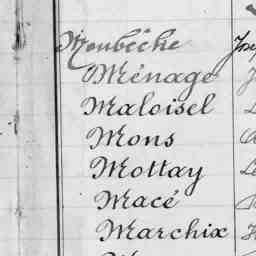 Monbêche
Ménage
Maloisel
Mons
Mottay
Macé
Marchix